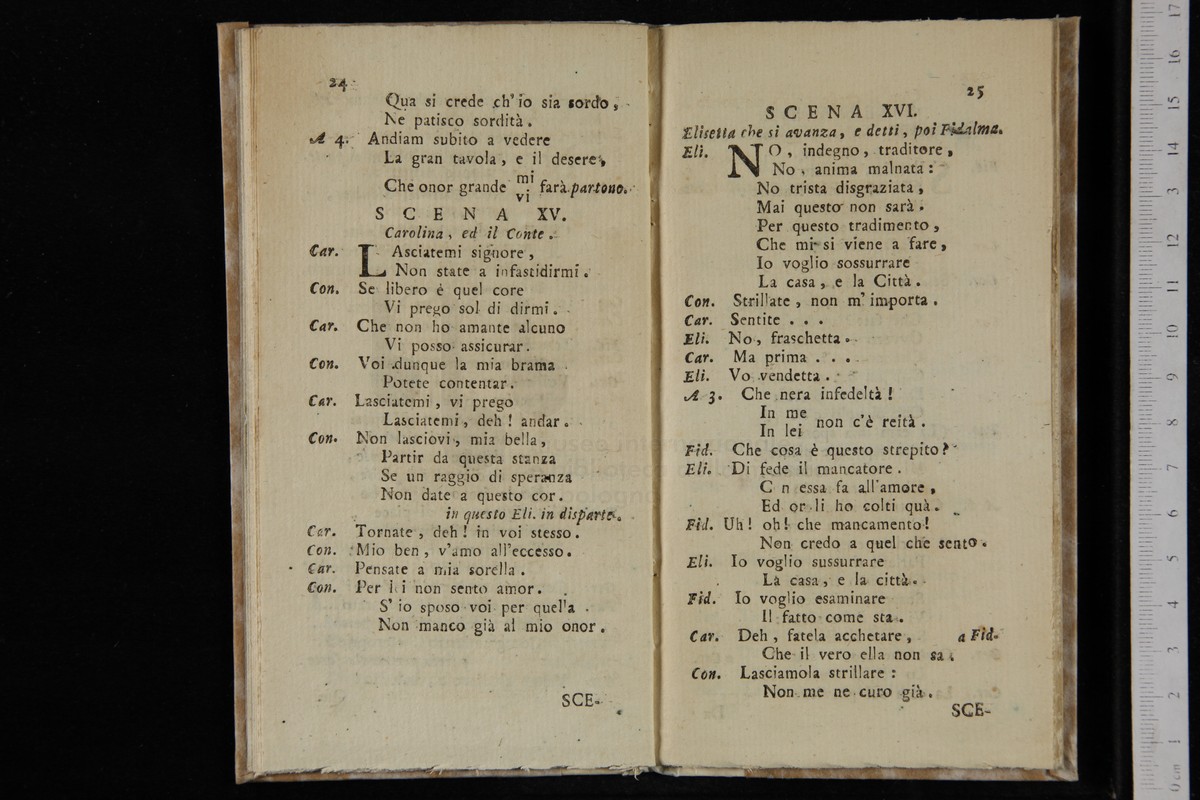 24
Qua si crede ch' io sia sordo,
Ne patisco sordità.
A 4. Andiam subito a vedere
La gran tavola, e il desere,
Che onor grande mi vi farà. partono.
SCENA XV.
Carolina, ed il Conte.
Car. LAsciatemi signore,
Non state a infastidirmi.
Con. Se libero è quel core
Vi prego sol di dirmi.
Car. Che non ho amante alcuno
Vi posso assicurar.
Con. Voi dunque la mia brama
Potete contentar.
Car. Lasciatemi, vi prego
Lasciatemi, deh! andar.
Con. Non lasciovi, mia bella,
Partir da questa stanza
Se un raggio di speranza
Non date a questo cor.
in questo Eli. in disparte.
Car. Tornate, deh! in voi stesso.
Con. Mio ben, v'amo all'eccesso.
Car. Pensate a mia sorella.
Con. Per l i non sento amor.
S' io sposo voi per quel'a
Non manco già al mio onor.
SCE-
25
SCENA XVI.
Elisetta che si avanza, e detti, poi Fidalma.
Eli. NO, indegno, traditore,
No, anima malnata:
No trista disgraziata,
Mai questo non sarà.
Per questo tradimento,
Che mi si viene a fare,
Io voglio sossurrare
La casa, e la Città.
Con. Strillate, non m' importa.
Car. Sentite . . .
Eli. No, fraschetta.
Car. Ma prima . . .
Eli. Vo vendetta.
A 3. Che nera infedeltà!
In me
In lei non c'è reità.
Fid. Che cosa è questo strepito?
Eli. Di fede il mancatore.
C n essa fa all'amore,
Ed or li ho colti quà.
Fid. Uh! oh! che mancamento!
Non credo a quel che sento.
Eli. Io voglio sussurrare
La casa, e la città.
Fid. Io voglio esaminare
Il fatto come sta.
Car. Deh, fatela acchetare, a Fid.
Che il vero ella non sa.
Con. Lasciamola strillare:
Non me ne curo già.
SCE-
0 cm 1 2 3 4 5 6 7 8 9 10 11 12 13 14 15 16 17